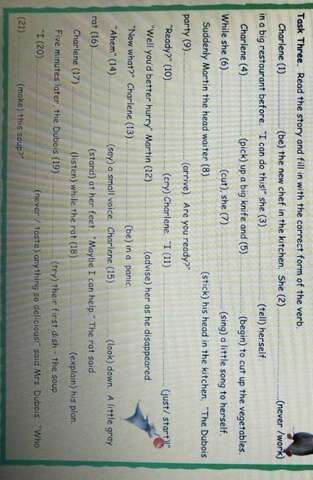 Task Three. Read the story and fill in with the correct form of the verb.
Charlene (1) .................... (be) the new chef in the kitchen. She (2) .................... (never /work)
in a big restaurant before. "I can do this!" she (3) .................... (tell) herself.
Charlene (4) .................... (pick) up a big knife and (5) .................... (begin) to cut up the vegetables.
While she (6) .................... (cut), she (7) .................... (sing) a little song to herself.
Suddenly Martin the head waiter (8) .................... (stick) his head in the kitchen. "The Dubois
party (9) .................... (arrive). Are you ready?"
"Ready?" (10) .................... (cry) Charlene. "I (11) .................... (just/ start)!"
"Well you'd better hurry" Martin (12) .................... (advise) her as he disappeared.
"Now what?" Charlene (13) .................... (be) in a panic.
"Ahem" (14) .................... (say) a small voice. Charlene (15) .................... (look) down. A little gray
rat (16) .................... (stand) at her feet. "Maybe I can help." The rat said.
Charlene (17) .................... (listen) while the rat (18) .................... (explain) his plan.
Five minutes later, the Dubois (19) .................... (try) their first dish - the soup.
"I (20) .................... (never / taste) anything so delicious!" said Mrs. Dubois. "Who
(21) .................... (make) this soup?"